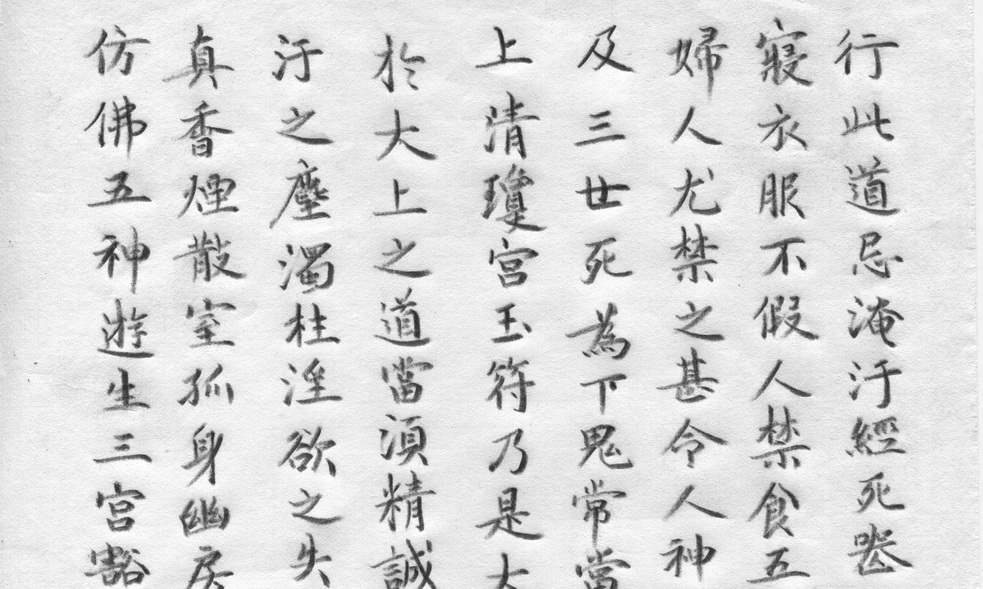 行此道忌淹汙經死䘮
寢衣服不假人禁食五
婦人尤禁之甚令人神
及三世死為下鬼常當
上清瓊宮玉符乃是太
於大上之道當須精誠
汙之塵濁柱淫欲之失
真香煙散室孤身幽房
仿佛五神遊生三宮豁